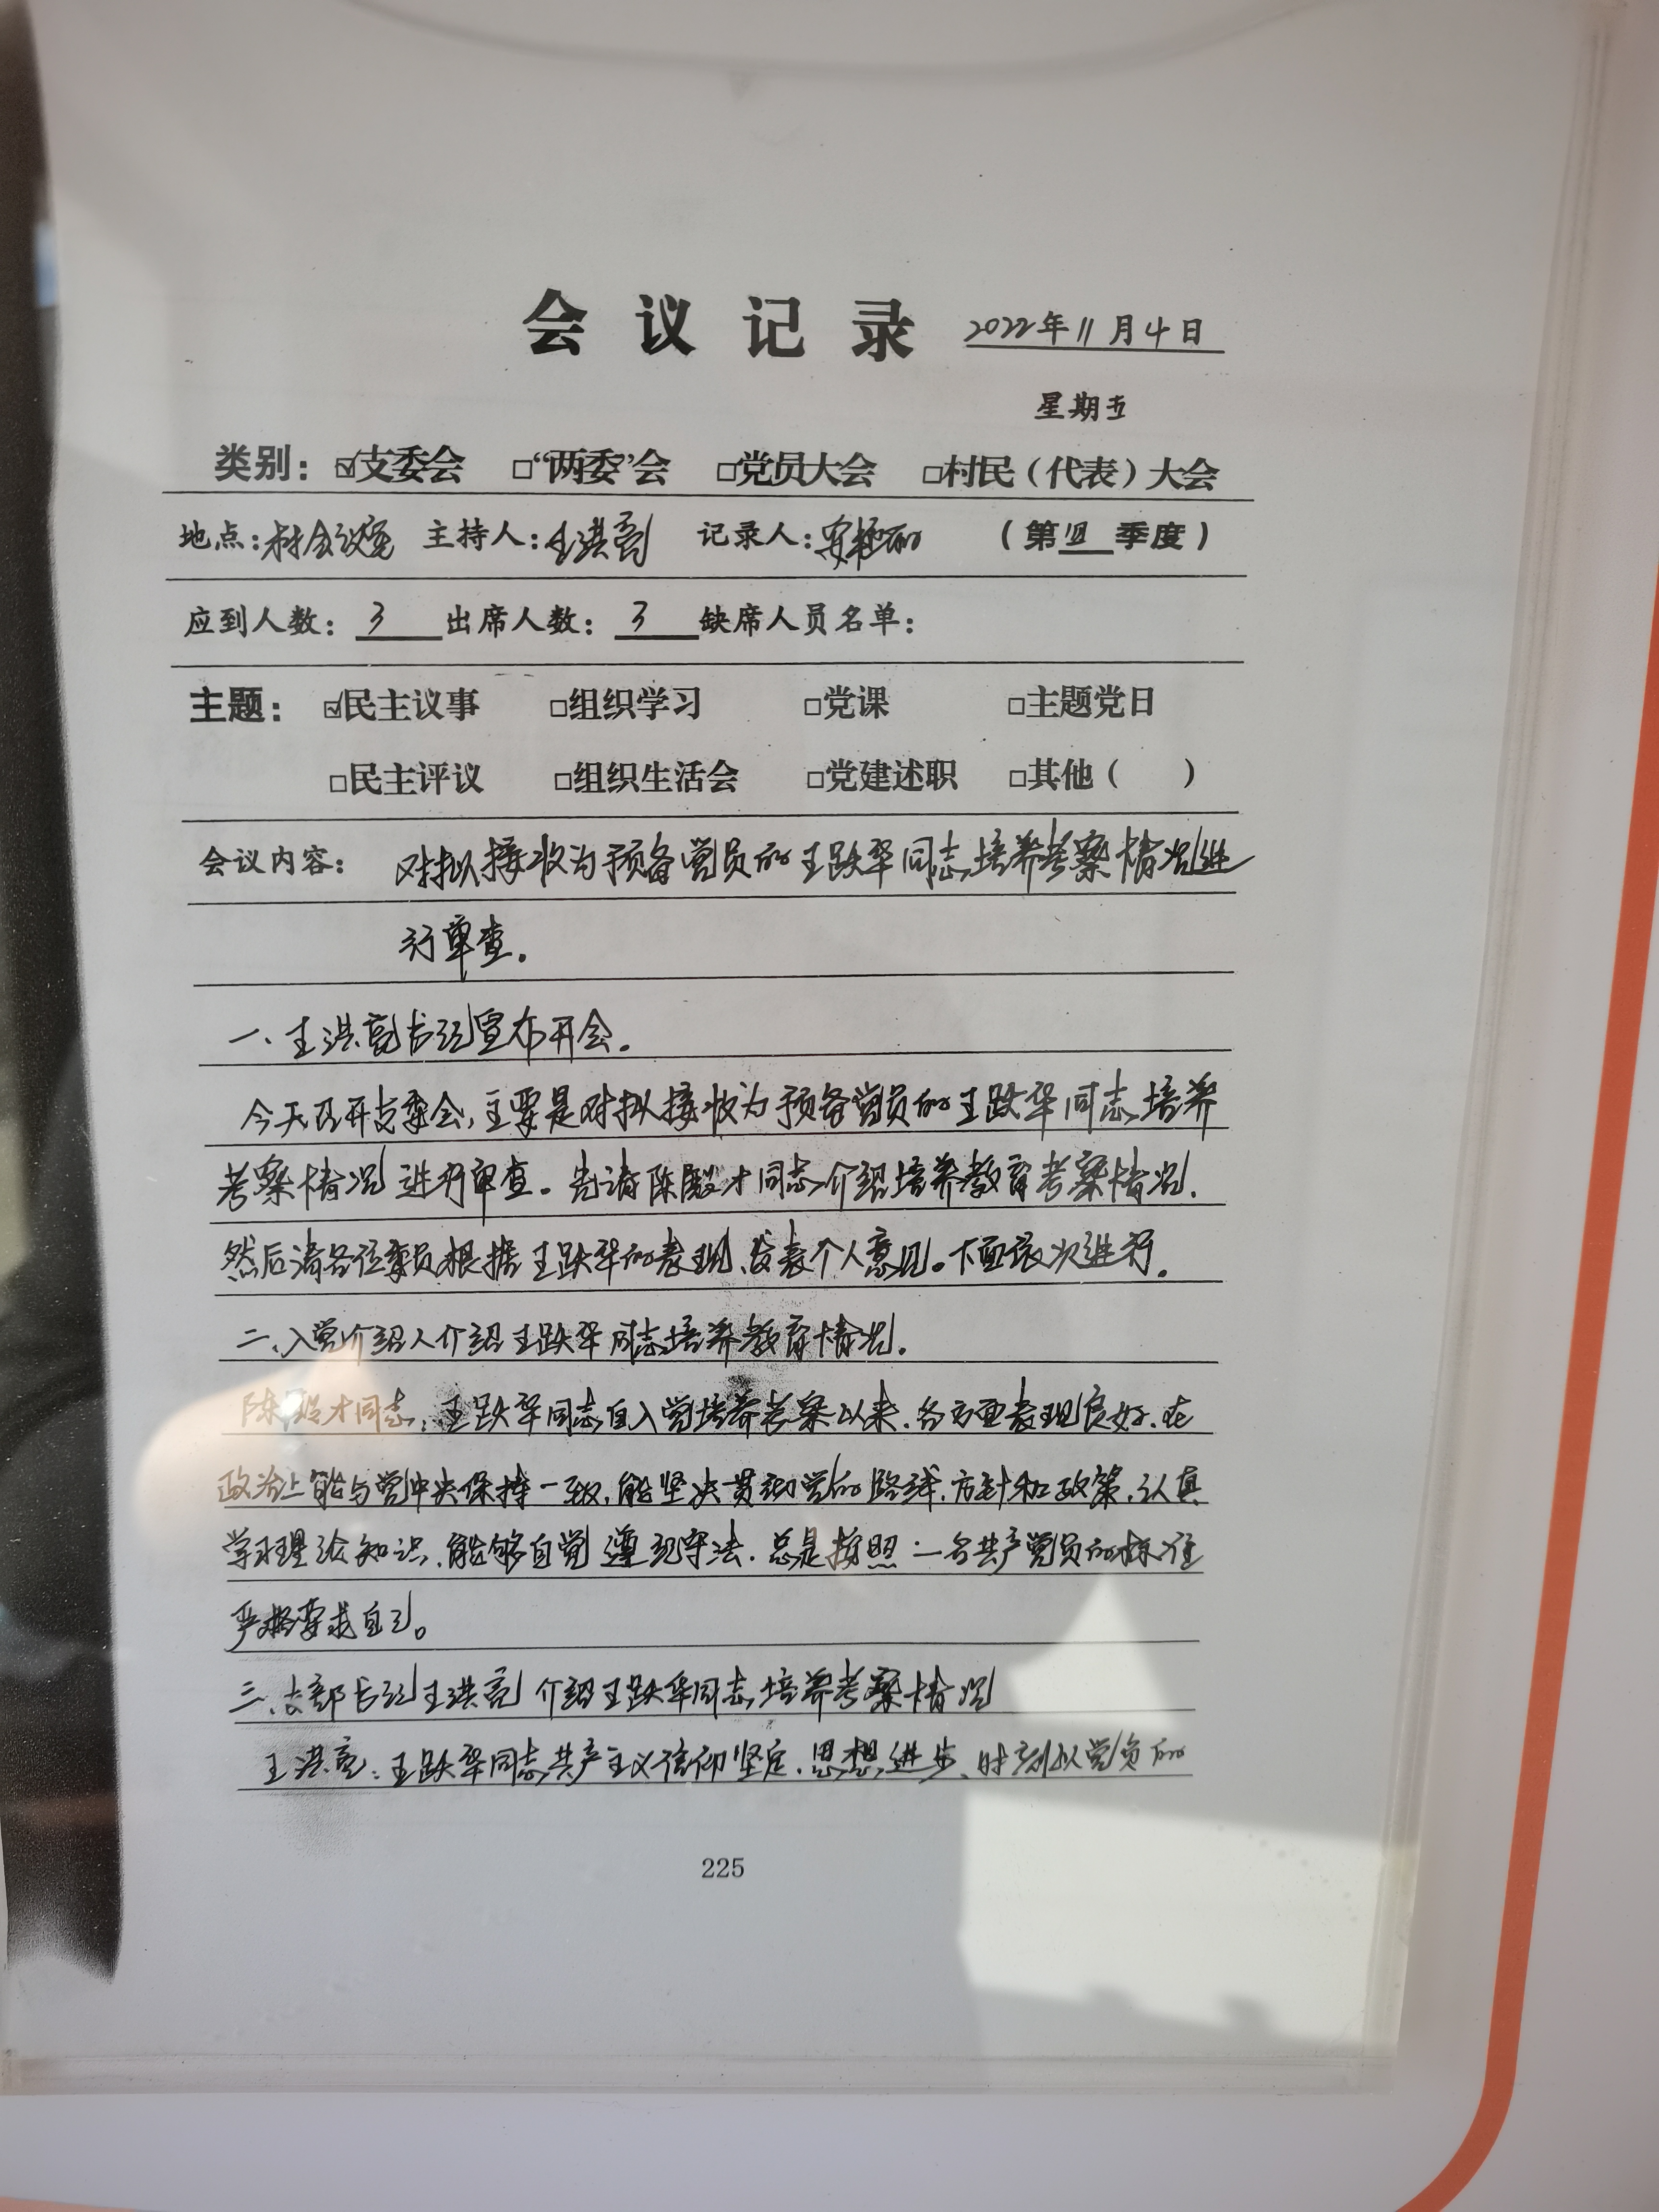 会议记录 2022年11月4日
星期五
类别：☑支委会 □“两委”会 □党员大会 □村民（代表）大会
地点：村会议室 主持人：王洪亮 记录人： （第四季度）
应到人数：3 出席人数：3 缺席人员名单：
主题：☑民主议事 □组织学习 □党课 □主题党日
□民主评议 □组织生活会 □党建述职 □其他（ ）
会议内容：对拟接收为预备党员的王跃华同志培养考察情况进
行审查。
一、王洪亮书记宣布开会。
今天召开支委会，主要是对拟接收为预备党员的王跃华同志培养
考察情况进行审查。先请陈殿才同志介绍培养教育考察情况，
然后请各位委员根据王跃华的表现、发表个人意见。下面依次进行。
二、入党介绍人介绍王跃华同志培养教育情况。
陈殿才同志：王跃华同志自入党培养考察以来，各方面表现良好，在
政治上能与党中央保持一致，能坚决贯彻党的路线，方针和政策，认真
学习理论知识，能够自觉遵纪守法，总是按照一名共产党员的标准
严格要求自己。
三、支部书记王洪亮介绍王跃华同志培养考察情况
王洪亮：王跃华同志共产主义信仰坚定，思想进步、时刻以党员的
225